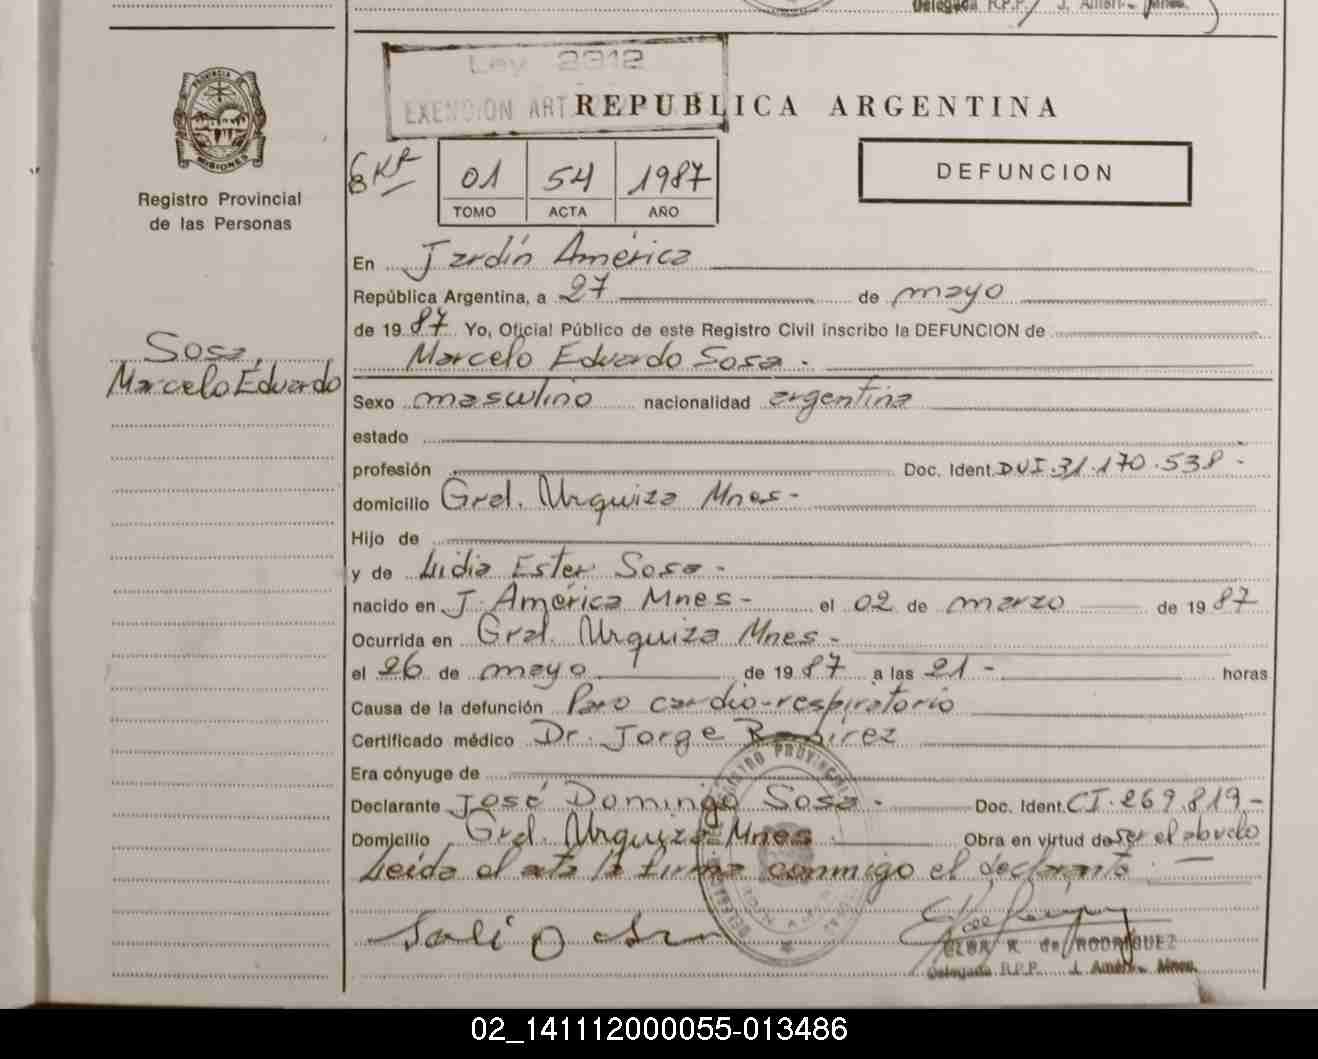 Delegada R.P.P. J. Améri- Mnes.
Ley 2312
EXENCION ART
REPUBLICA ARGENTINA
PROVINCIA DE
MISIONES
Registro Provincial
de las Personas
01 54 1987
TOMO ACTA AÑO
DEFUNCION
En Jardín América
República Argentina, a 27 de mayo
de 1987 Yo, Oficial Público de este Registro Civil inscribo la DEFUNCION de
Marcelo Eduardo Sosa.
Sosa,
Marcelo Eduardo
Sexo masculino nacionalidad argentina
estado
profesión Doc. Ident. DUI.31.170.538-
domicilio Gral. Urquiza Mnes-
Hijo de
y de Lidia Ester Sosa-
nacido en J. América Mnes- el 02 de marzo de 1987
Ocurrida en Gral. Urquiza Mnes-
el 26 de mayo de 1987 a las 21- horas
Causa de la defunción Paro cardio-respiratorio
Certificado médico Dr. Jorge Ramirez
Era cónyuge de
Declarante José Domingo Sosa- Doc. Ident. CI.269.819-
Domicilio Gral. Urquiza Mnes Obra en virtud de ser el abuelo
Leída el acta la firma conmigo el declarante.-
ELBA R. de RODRIGUEZ
Delegada R.P.P. J. Améri- Mnes.
02_141112000055-013486